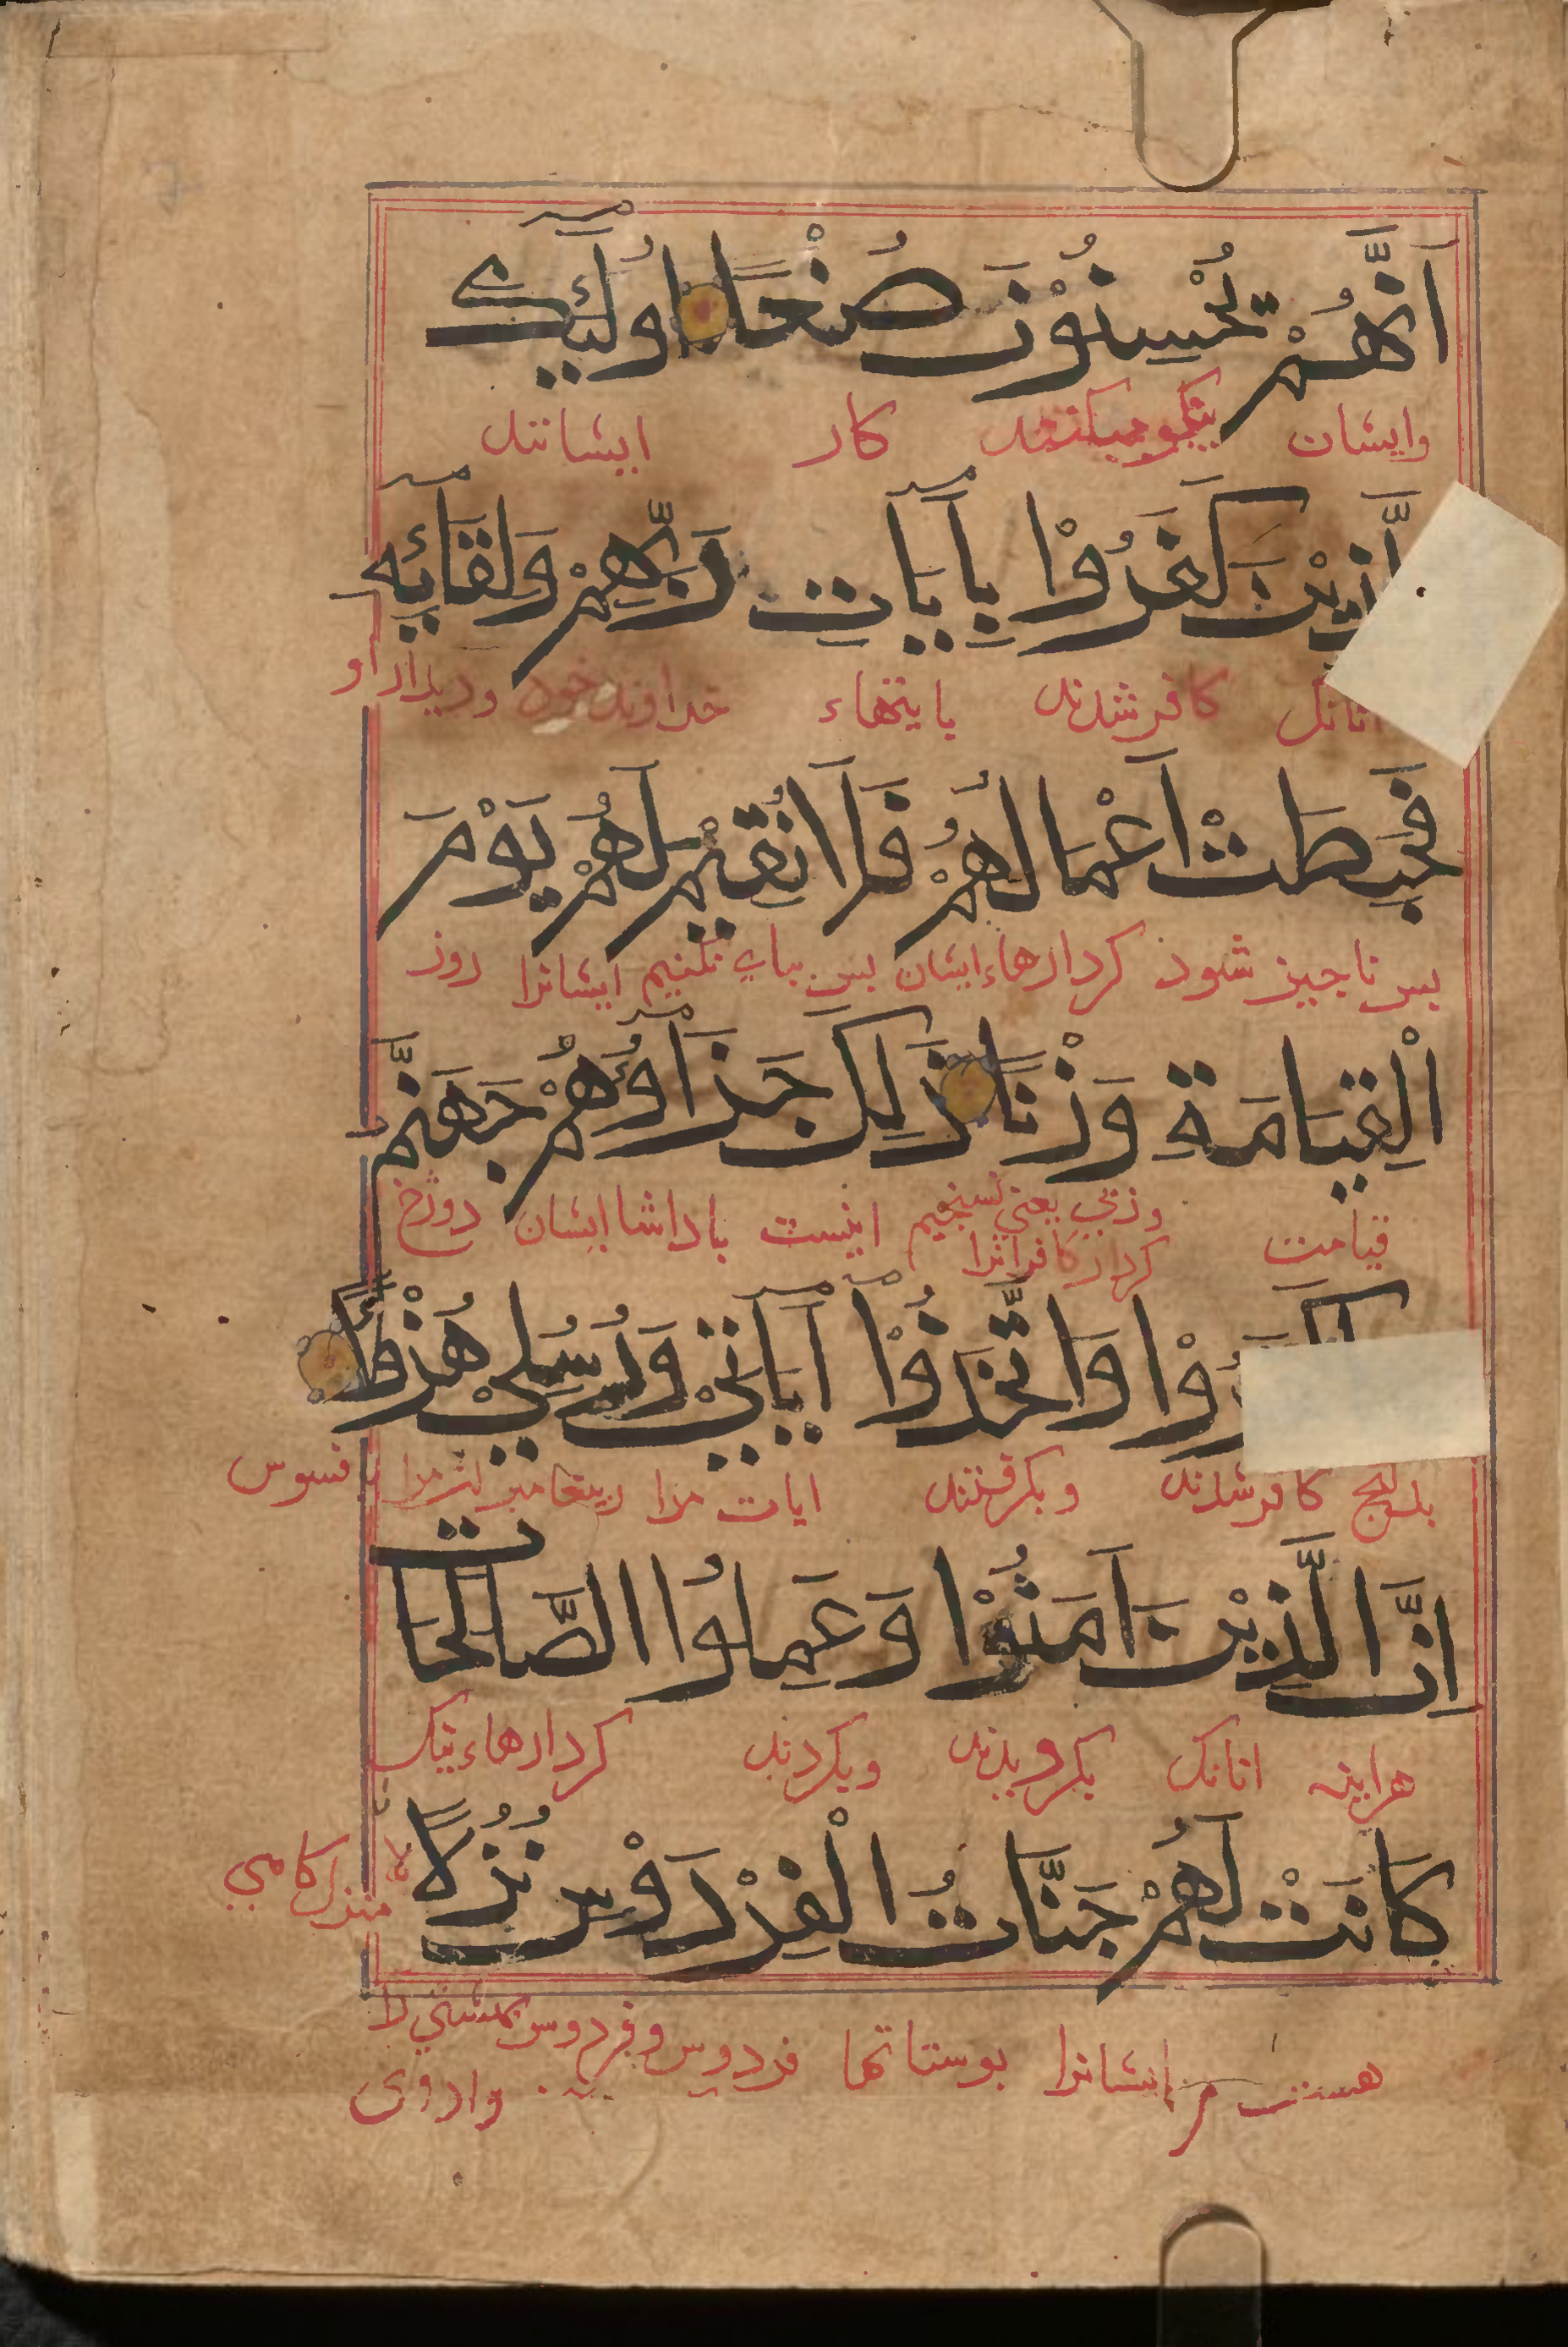 اَنَّهُمْ يُحْسِنُوْنَ صُنْعًا اُولَٓئِكَ
وایشان نیکو میکنند کار ایشانند
الَّذِيْنَ كَفَرُوْا بِاٰيَاتِ رَبِّهِمْ وَلِقَآئِهٖ
انانک کافر شدند بایتهاء خداوند خود و دیدار او
فَحَبِطَتْ اَعْمَالُهُمْ فَلَا نُقِيْمُ لَهُمْ يَوْمَ
بس ناجیز شود کردارهاء ایشان بس بباى نکنیم ایشانرا روز
الْقِيَامَةِ وَزْنًا ذَلِكَ جَزَآؤُهُمْ جَهَنَّمُ
قیامت وزنی یعنی نسنجیم اینست باداشا ایشان دوزخ
کردار کافرانرا
رُوْا وَاتَّخَذُوْٓا اٰيَاتِيْ وَرُسُلِيْ هُزُؤًا
کافر شدند وبکرفتند ایات مرا فسوس
اِنَّ الَّذِيْنَ اٰمَنُوْا وَعَمِلُوا الصَّالِحَات
هراینه انانک بکرویدند وبکردند کردارهاء نیک
كَانَتْ لَهُمْ جَنَّاتُ الْفِرْدَوْسِ نُزُلًا
منزل کامی
هست مر ایشانرا بوستانها فردوس وفردوس بهشتی را